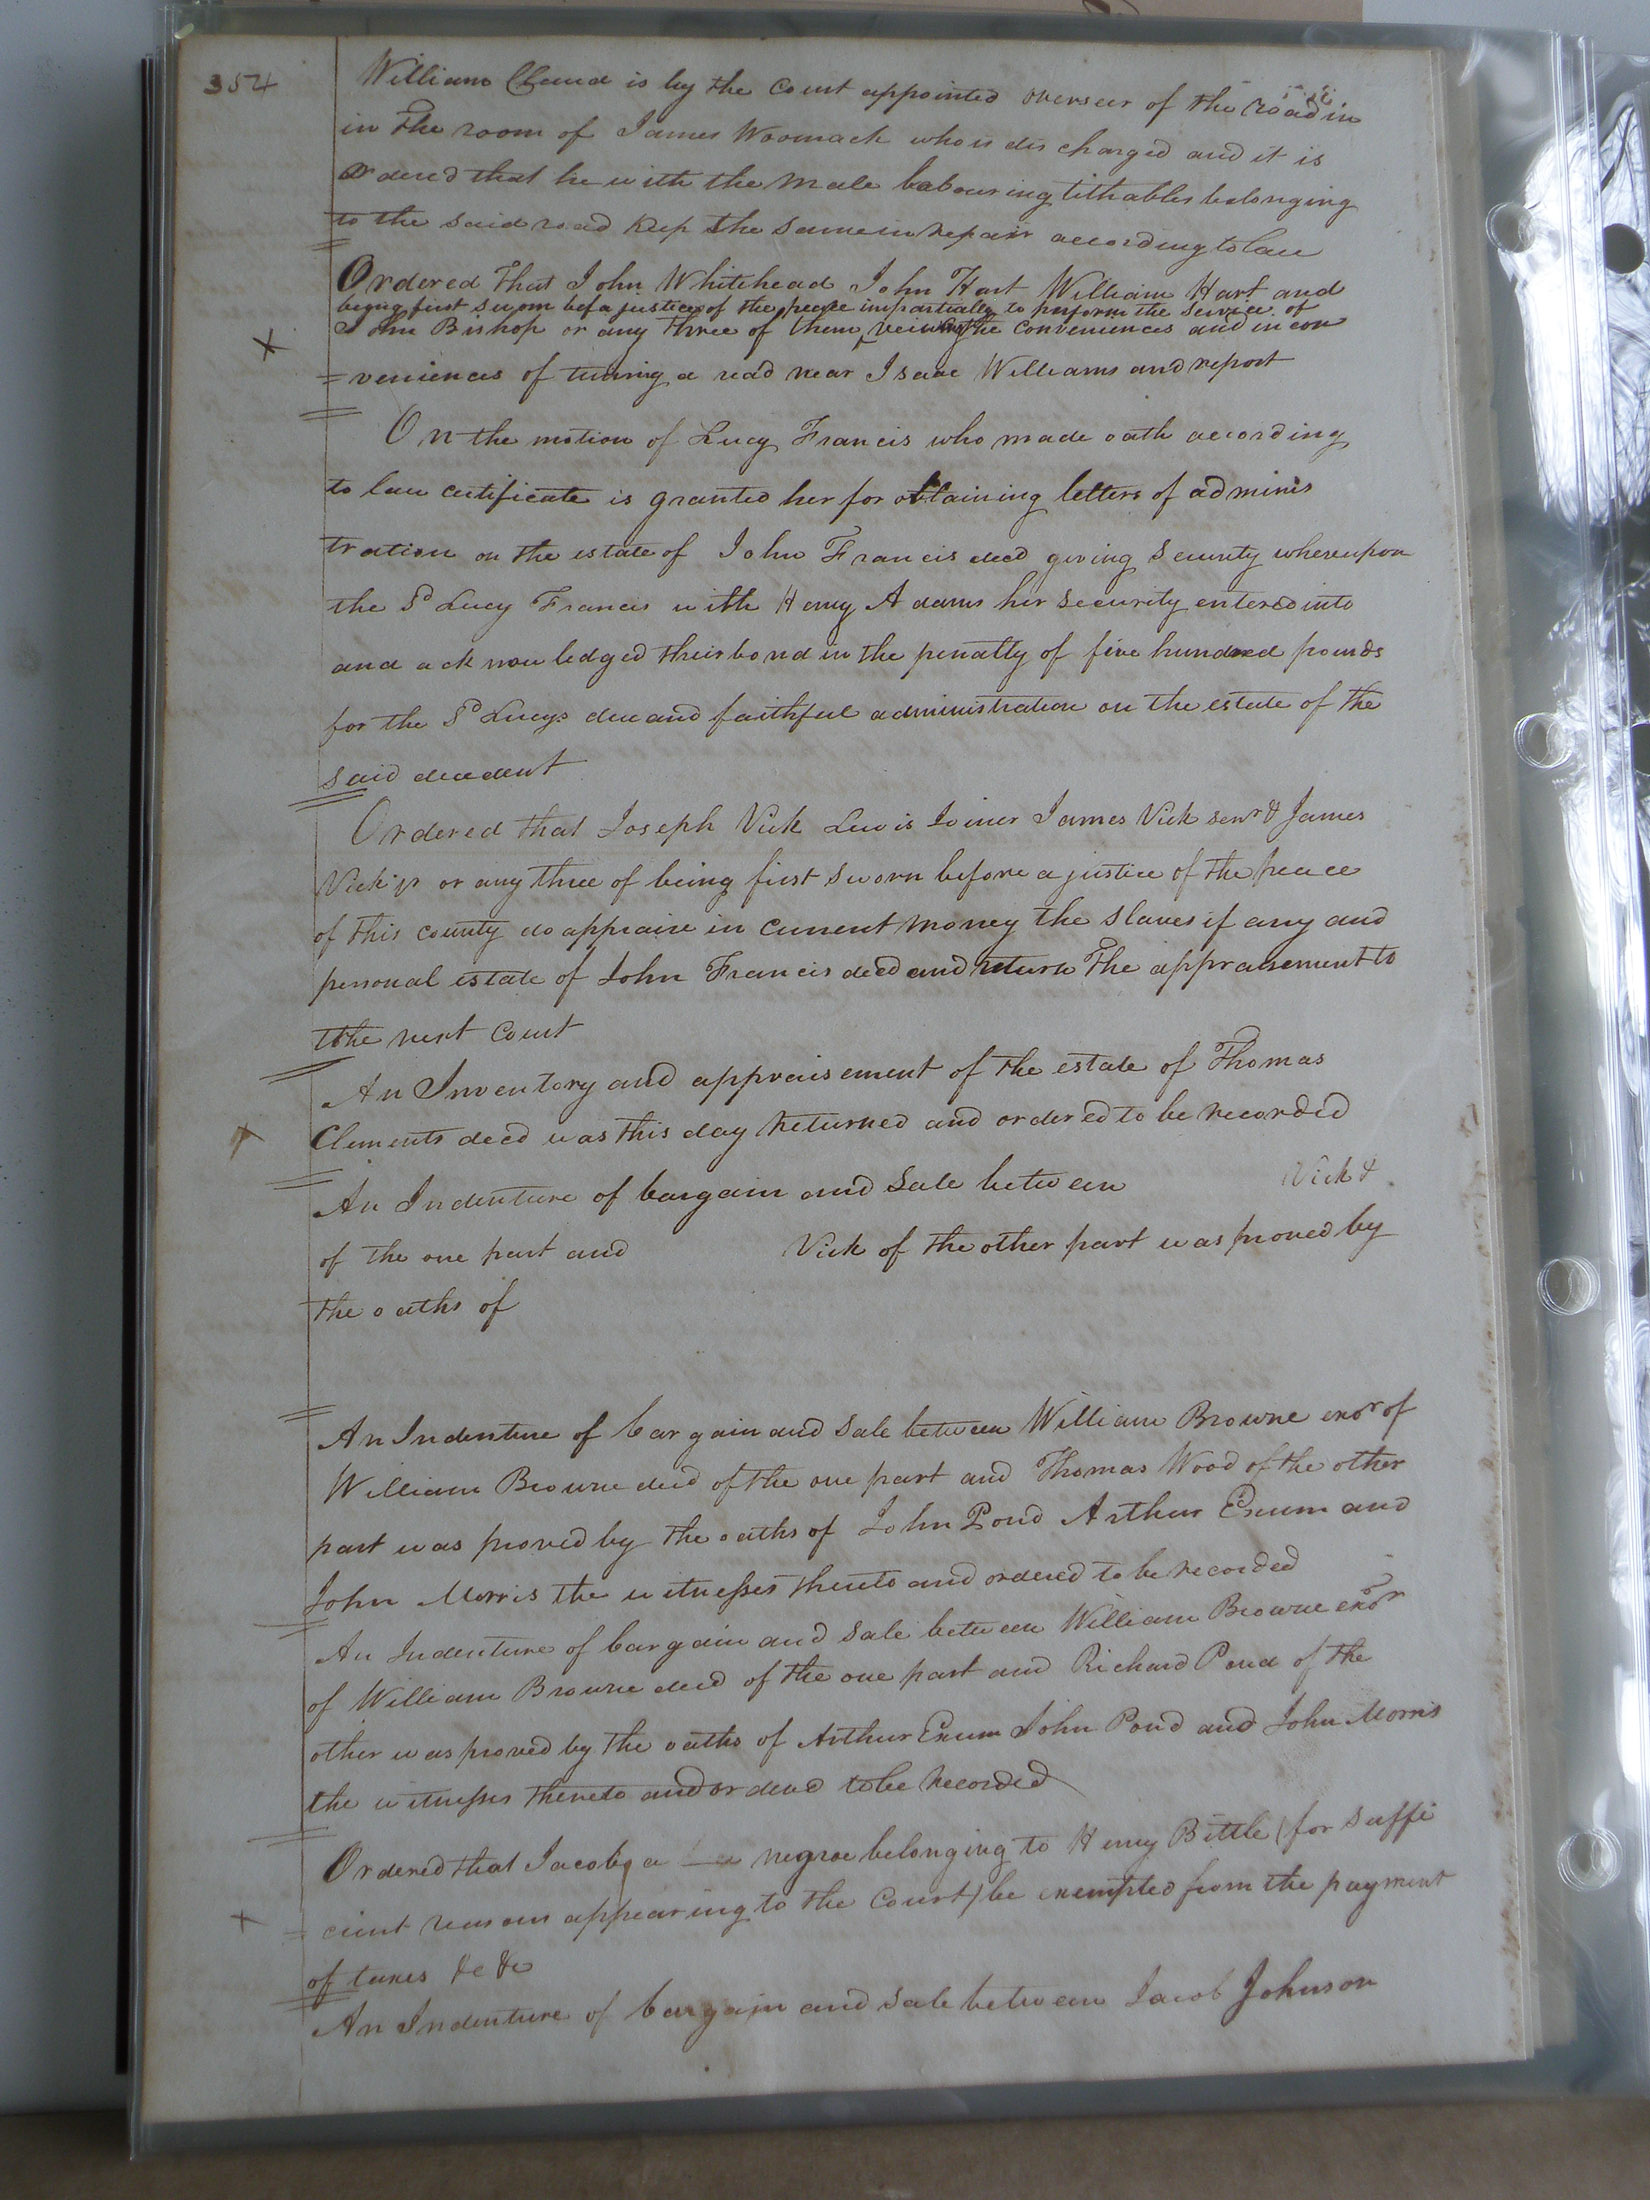 354
William Claud is by the Court appointed overseer of the road in
in the room of James Woomack who is discharged and it is
Ordered that he with the male labouring tithables belonging
to the said road keep the same in repair according to law
Ordered that John Whitehead John Hart William Hart and
being first sworn bef a justice of the peace impartially to perform the service of
John Bishop or any three of them veiwing the conveniences and incon
=veniences of turning a road near Isaac Williams and report
On the motion of Lucy Francis who made oath according
to law certificate is granted her for obtaining letters of adminis
tration on the estate of John Francis decd giving security whereupon
the Sd Lucy Francis with Henry Adams her security entered into
and acknowledged their bond in the penalty of five hundred pounds
for the Sd Lucys due and faithful administration on the estate of the
said decedent
Ordered that Joseph Vick Lewis Joiner James Vick senr & James
Vick jr or any three of being first sworn before a justice of the peace
of this county do appraise in current money the slaves if any and
personal estate of John Francis decd and return the appraisement to
the next Court
An Inventory and appraisement of the estate of Thomas
Clements decd was this day returned and ordered to be recorded
An Indenture of bargain and sale between Vick &
of the one part and Vick of the other part was proved by
the oaths of
An Indenture of bargain and sale between William Browne exor of
William Browne decd of the one part and Thomas Wood of the other
part was proved by the oaths of John Pond Arthur Exum and
John Morris the witnesses thereto and ordered to be recorded
An Indenture of bargain and sale between William Browne exor
of William Browne decd of the one part and Richard Pond of the
other was proved by the oaths of Arthur Exum John Pond and John Morris
the witnesses thereto and ordered to be recorded
Ordered that Jacob, a negroe belonging to Henry Bittle (for suffi
=cient reasons appearing to the Court) be exempted from the payment
of taxes &c &c
An Indenture of bargain and sale between Jacob Johnson